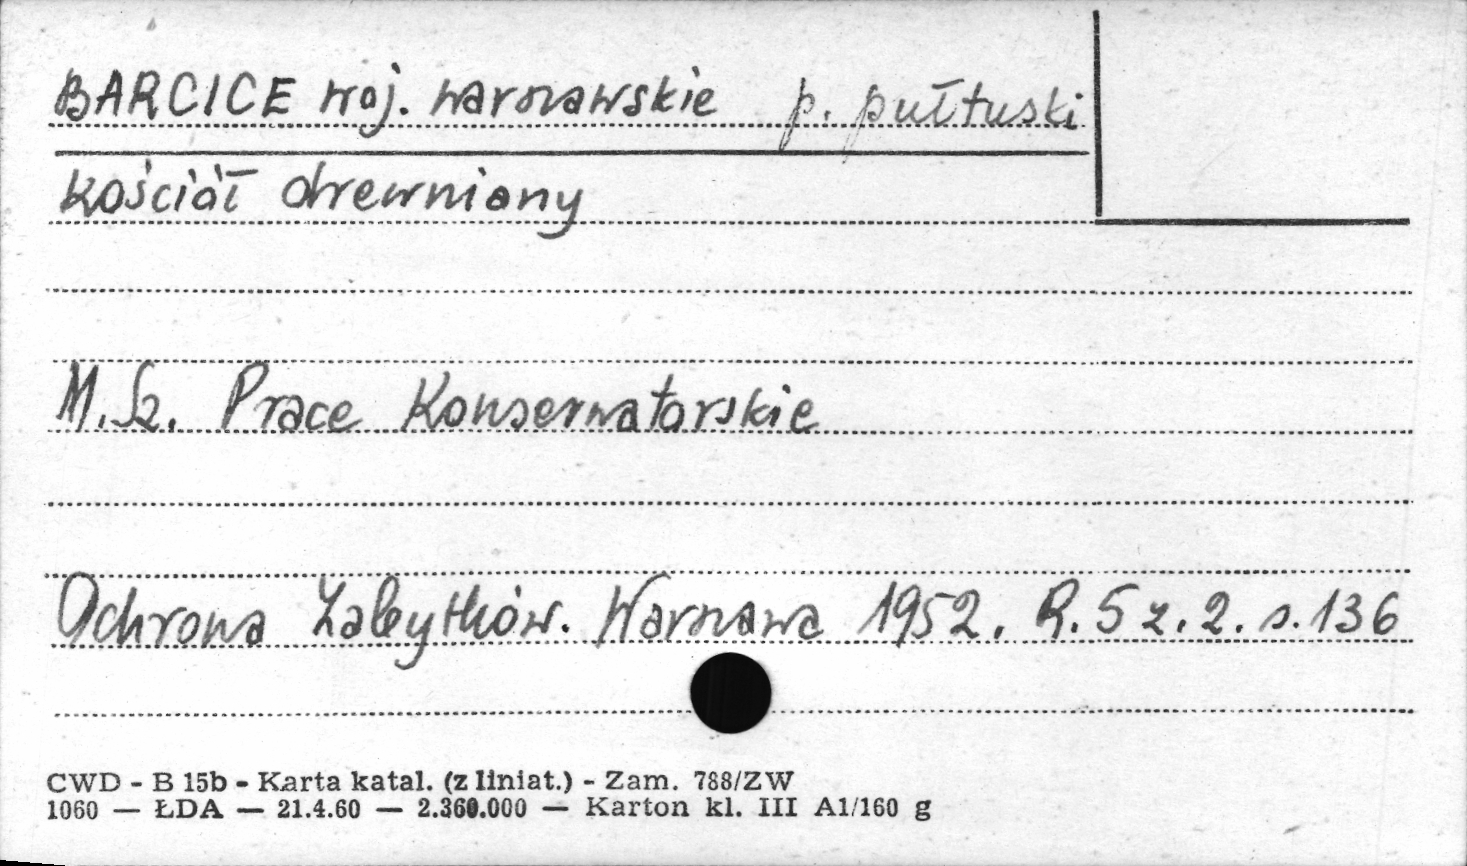 BARCICE woj. warszawskie p. pułtuski
Kościół drewniany
M. Sz. Prace Konserwatorskie
Ochrona Zabytków. Warszawa 1952. R. 5 z. 2. s. 136
CWD - B 15b - Karta katal. (z liniat.) - Zam. 788/ZW
1060 — ŁDA — 21.4.60 — 2.360.000 — Karton kl. III A1/160 g